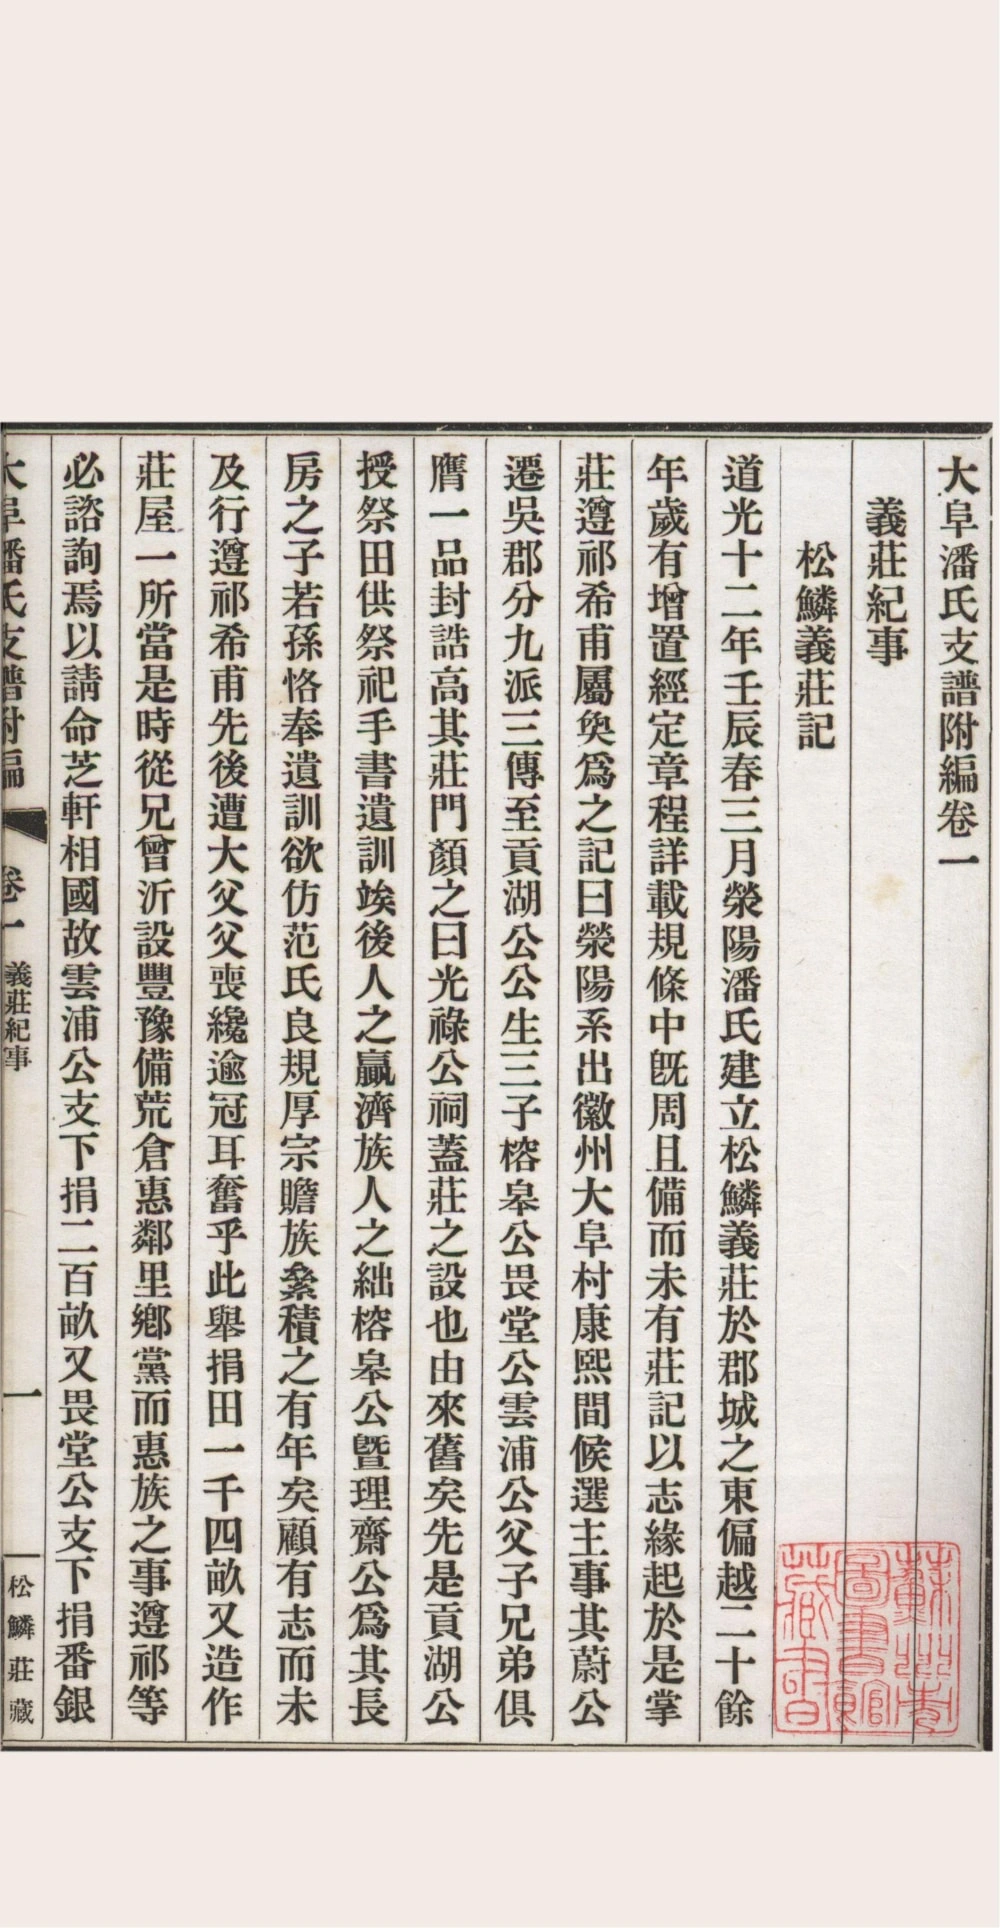 大阜潘氏支譜附編卷一
義莊紀事
松鱗義莊記
道光十二年壬辰春三月滎陽潘氏建立松鱗義莊於郡城之東偏越二十餘
年歲有增置經定章程詳載規條中旣周且備而未有莊記以志緣起於是掌
莊遵祁希甫屬奐爲之記曰滎陽系出徽州大阜村康熙間候選主事其蔚公
遷吳郡分九派三傳至貢湖公公生三子榕皋公畏堂公雲浦公父子兄弟俱
膺一品封誥高其莊門顏之曰光祿公祠蓋莊之設也由來舊矣先是貢湖公
授祭田供祭祀手書遺訓竢後人之贏濟族人之絀榕皋公曁理齋公爲其長
房之子若孫恪奉遺訓欲仿范氏良規厚宗贍族絫積之有年矣顧有志而未
及行遵祁希甫先後遭大父父喪纔逾冠耳奮乎此舉捐田一千四畝又造作
莊屋一所當是時從兄曾沂設豐豫備荒倉惠鄰里鄉黨而惠族之事遵祁等
必諮詢焉以請命芝軒相國故雲浦公支下捐二百畝又畏堂公支下捐番銀
大阜潘氏支譜附編 卷一 義莊紀事 一 松鱗莊藏
蘇州市
圖書館
藏書